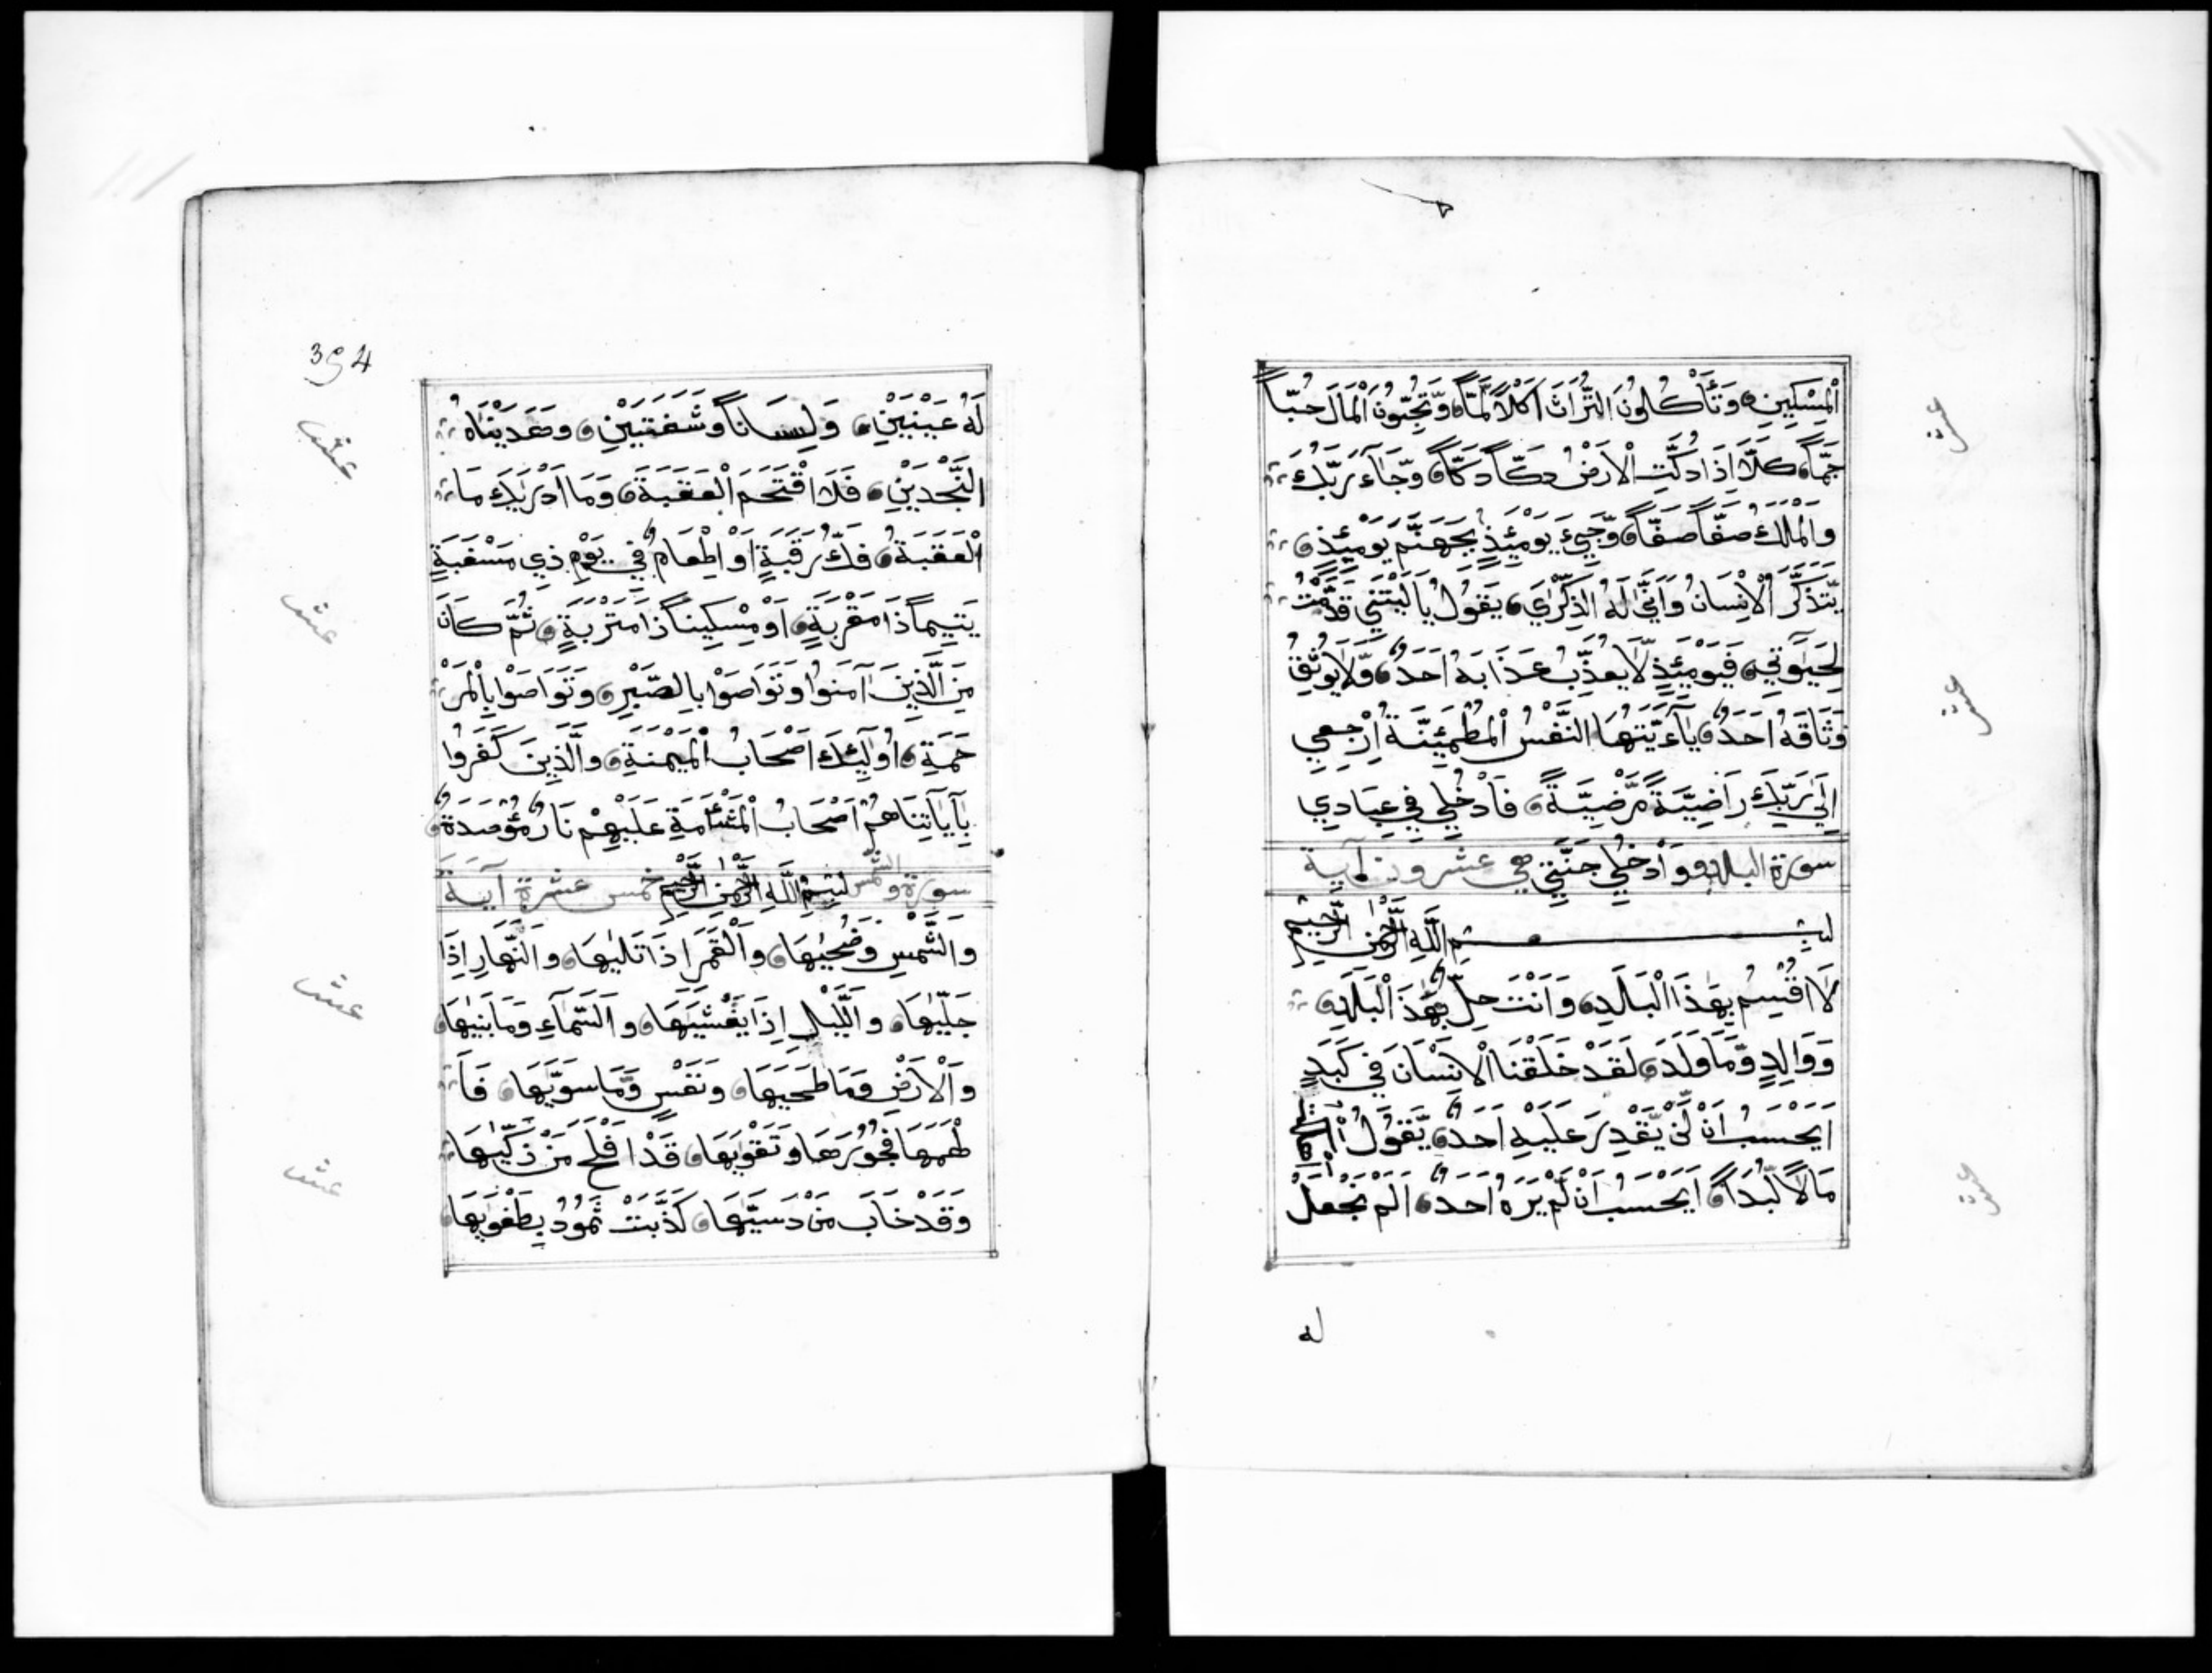 الْمِسْكِينِ وَتَأْكُلُونَ التُّرَاثَ اَكْلاً لَّمّاً وَّتُحِبُّونَ الْمَالَ حُبّاً
جَمّاً كَلَّا اِذَا دُكَّتِ الْاَرْضُ دَكّاً دَكّاً وَّجَآءَ رَبُّكَ
وَالْمَلَكُ صَفّاً صَفّاً وَّجِيْءَ يَوْمَئِذٍ بِجَهَنَّمَ يَوْمَئِذٍ
يَّتَذَكَّرُ الْاِنْسَانُ وَاَنّٰى لَهُ الذِّكْرٰى يَقُولُ يَا لَيْتَنِي قَدَّمْتُ
لِحَيٰوتِي فَيَوْمَئِذٍ لَّا يُعَذِّبُ عَذَابَهُ اَحَدٌ وَّلَا يُوثِقُ
وَثَاقَهُ اَحَدٌ يَآ اَيَّتُهَا النَّفْسُ الْمُطْمَئِنَّةُ ارْجِعِي
اِلٰى رَبِّكَ رَاضِيَةً مَّرْضِيَّةً فَادْخُلِي فِي عِبَادِي
سورة البلد وَادْخُلِي جَنَّتِي هي عشرون آية
بِسْمِ اللّٰهِ الرَّحْمٰنِ الرَّحِيمِ
لَا اُقْسِمُ بِهٰذَا الْبَلَدِ وَاَنْتَ حِلٌّ بِهٰذَا الْبَلَدِ
وَوَالِدٍ وَّمَا وَلَدَ لَقَدْ خَلَقْنَا الْاِنْسَانَ فِي كَبَدٍ
اَيَحْسَبُ اَنْ لَّنْ يَّقْدِرَ عَلَيْهِ اَحَدٌ يَّقُولُ
مَالاً لُّبَداً اَيَحْسَبُ اَنْ لَّمْ يَرَهُ اَحَدٌ اَلَمْ نَجْعَلْ
له
عشر
عشر
عشر
394
لَهُ عَيْنَيْنِ وَلِسَاناً وَشَفَتَيْنِ وَهَدَيْنَاهُ
النَّجْدَيْنِ فَلَا اقْتَحَمَ الْعَقَبَةَ وَمَا اَدْرٰيكَ مَا
الْعَقَبَةُ فَكُّ رَقَبَةٍ اَوْ اِطْعَامٌ فِي يَوْمٍ ذِي مَسْغَبَةٍ
يَتِيماً ذَا مَقْرَبَةٍ اَوْ مِسْكِيناً ذَا مَتْرَبَةٍ ثُمَّ كَانَ
مِنَ الَّذِينَ آمَنُوا وَتَوَاصَوْا بِالصَّبْرِ وَتَوَاصَوْا بِالْمَرْ
حَمَةِ اُولٰٓئِكَ اَصْحَابُ الْمَيْمَنَةِ وَالَّذِينَ كَفَرُوا
بِآيَاتِنَا هُمْ اَصْحَابُ الْمَشْئَمَةِ عَلَيْهِمْ نَارٌ مُّؤْصَدَةٌ
سورة والشمس بِسْمِ اللّٰهِ الرَّحْمٰنِ الرَّحِيمِ خمس عشرة آية
وَالشَّمْسِ وَضُحٰيهَا وَالْقَمَرِ اِذَا تَلٰيهَا وَالنَّهَارِ اِذَا
جَلّٰيهَا وَاللَّيْلِ اِذَا يَغْشٰيهَا وَالسَّمَآءِ وَمَا بَنٰيهَا
وَالْاَرْضِ وَمَا طَحٰيهَا وَنَفْسٍ وَّمَا سَوّٰيهَا فَاَ
لْهَمَهَا فُجُورَهَا وَتَقْوٰيهَا قَدْ اَفْلَحَ مَنْ زَكّٰيهَا
وَقَدْ خَابَ مَنْ دَسّٰيهَا كَذَّبَتْ ثَمُودُ بِطَغْوٰيهَا
عشر
عشر
عشر
عشر